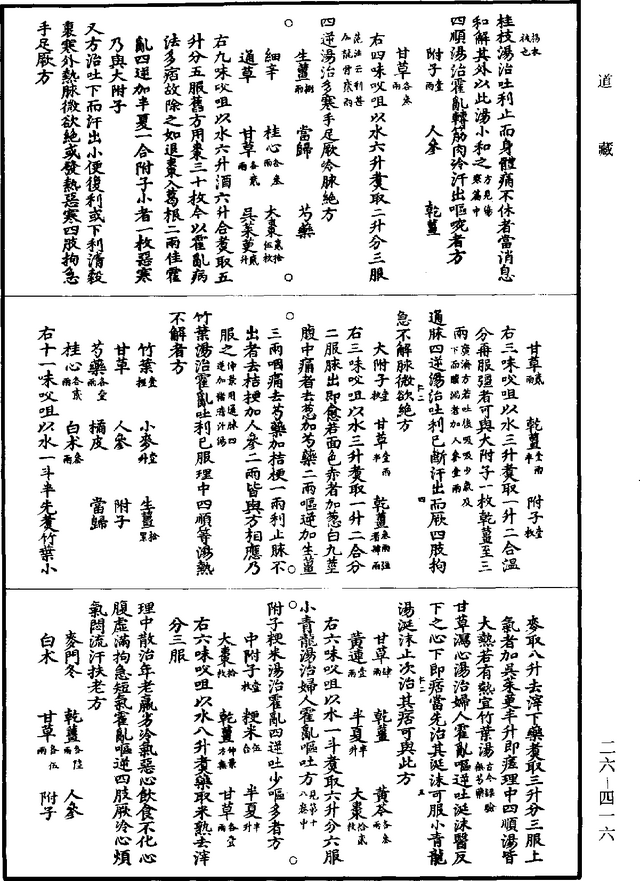 道藏
二六—四一六
桂枝湯治吐利止而身體痛不休者當消息
和解其外以此湯小和之方見傷寒篇中
四順湯治霍亂轉筋肉冷汗出嘔啘者方
附子壹兩 人參 乾薑
甘草各叁兩
右四味㕮咀以水六升煑取二升分三服
四逆湯治多寒手足厥冷脉絶方
生薑捌兩 當歸 芍藥
細辛 桂心各叁兩 大棗貳拾伍枚
通草 甘草各貳兩 吳茱萸貳升
右九味㕮咀以水六升酒六升合煑取五
升分五服舊方用棗三十枚今以霍亂病
法多痞故除之如退棗入葛根二兩佳霍
亂四逆加半夏一合附子小者一枚惡寒
乃與大附子
又方治吐下而汗出小便復利或下利清穀
裏寒外熱脉微欲絶或發熱惡寒四肢拘急
手足厥方
甘草貳兩 乾薑壹兩半 附子壹枚
右三味㕮咀以水三升煑取一升二合温
分再服强者可與大附子一枚乾薑至三
兩廣濟方若吐後吸吸少氣及下而腹滿者加人參壹兩
通脉四逆湯治吐利已斷汗出而厥四肢拘
急不解脉微欲絶方
大附子壹枚 甘草壹兩半 乾薑叁兩强者肆兩
右三味㕮咀以水三升煑取一升二合分
二服脉出即愈若面色赤者加葱白九莖
腹中痛者去葱加芍藥二兩嘔逆加生薑
三兩咽痛去芍藥加桔梗一兩利止脉不
出者去桔梗加人參二兩皆與方相應乃
服之仲景用通脉四逆加猪膽汁湯
竹葉湯治霍亂吐利已服理中四順等湯熱
不解者方
竹葉壹把 小麥壹升 生薑拾累
甘草 人參 附子
芍藥各壹兩 橘皮 當歸
桂心各貳兩 白术叁兩
右十一味㕮咀以水一斗半先煑竹葉小
麥取八升去滓下藥煑取三升分三服上
氣者加吳茱萸半升即瘥理中四順湯皆
大熱若有熱宜竹葉湯古今録驗無芍藥
甘草瀉心湯治婦人霍亂嘔逆吐涎沫醫反
下之心下即痞當先治其涎沫可服小青龍
湯涎沫止次治其痞可與此方
甘草肆兩 乾薑 黄芩各叁兩
黄連壹兩 半夏半升 大棗拾貳枚
右六味㕮咀以水一斗煑取六升分六服
小青龍湯治婦人霍亂嘔吐方見第十八卷中
附子粳米湯治霍亂四逆吐少嘔多者方
中附子壹枚 粳米伍合 半夏半升
大棗拾枚 乾薑仲景方無 甘草各壹兩
右六味㕮咀以水八升煑藥取米熟去滓
分三服
理中散治年老羸劣冷氣惡心飲食不化心
腹虛滿拘急短氣霍亂嘔逆四肢厥冷心煩
氣悶流汗扶老方
麥門冬 乾薑各陸兩 人參
白术 甘草各伍兩 附子